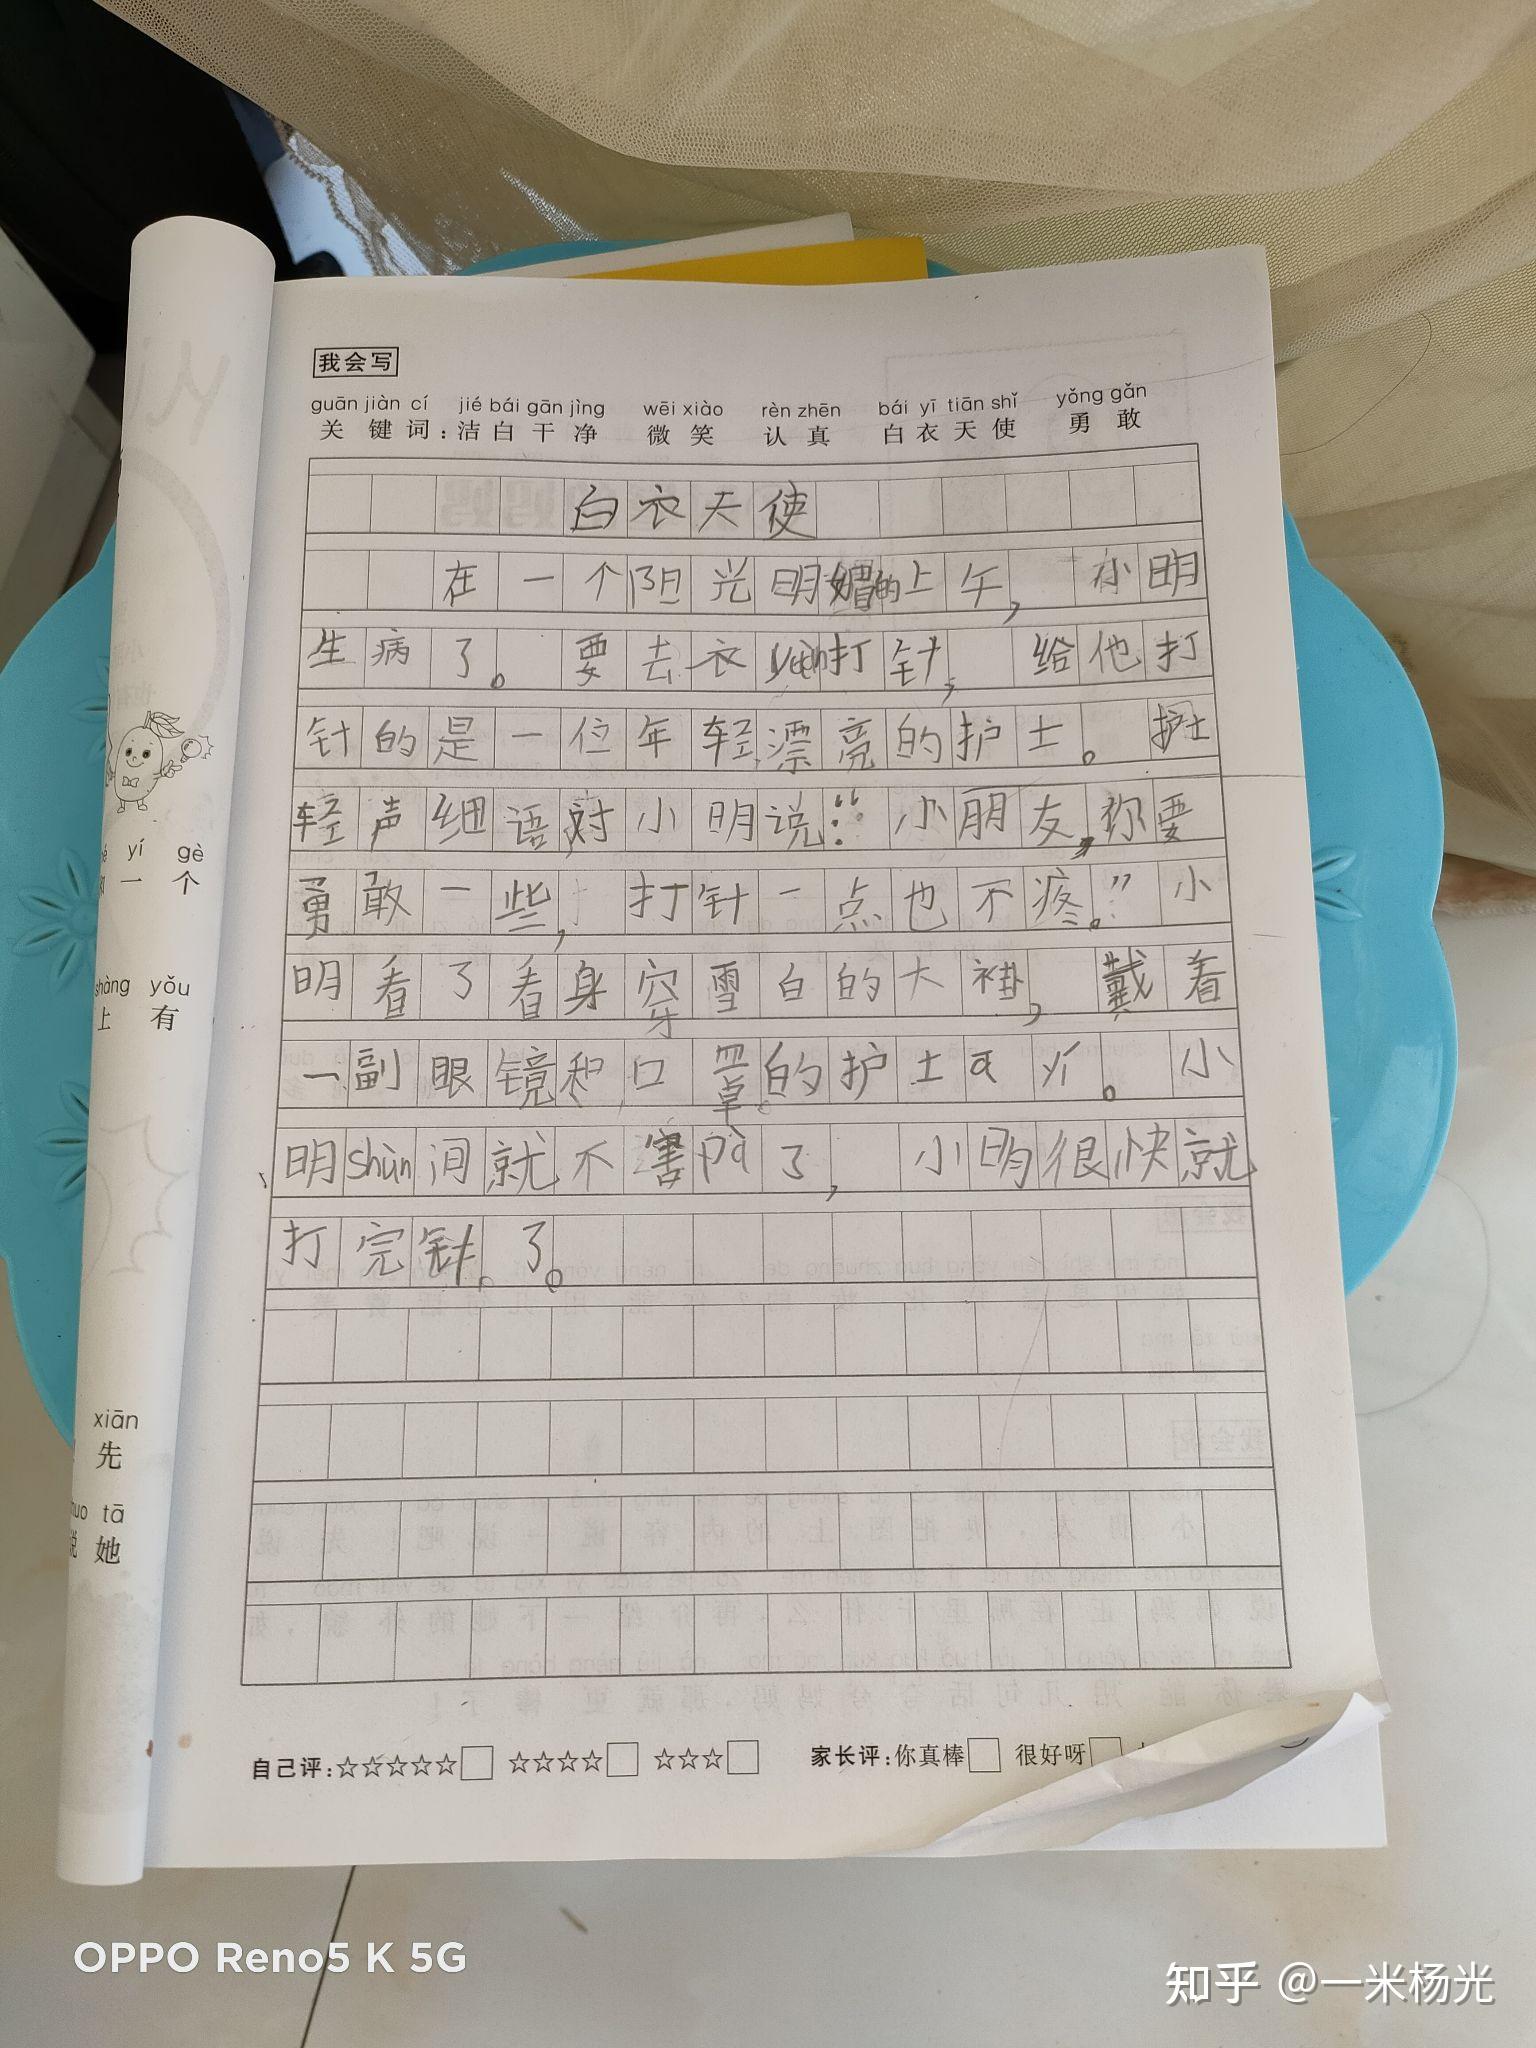 我会写
guān jiàn cí jié bái gān jìng wēi xiào rèn zhēn bái yī tiān shǐ yǒng gǎn
关键词：洁白干净 微笑 认真 白衣天使 勇敢
白衣天使
在一个阳光明媚的上午，小明
生病了。要去衣yuàn打针，给他打
针的是一位年轻漂亮的护士。护士
轻声细语对小明说：“小朋友，你要
勇敢一些，打针一点也不疼。”小
明看了看身穿雪白的大褂，戴着
一副眼镜和口罩的护士ā yí。小
明shùn间就不害pà了，小明很快就
打完针了。
yí gè
一个
shàng yǒu
上有
xiān
先
tā
说她
自己评：☆☆☆☆☆□ ☆☆☆☆□ ☆☆☆□ 家长评：你真棒□ 很好呀□
OPPO Reno5 K 5G
知乎 @一米杨光